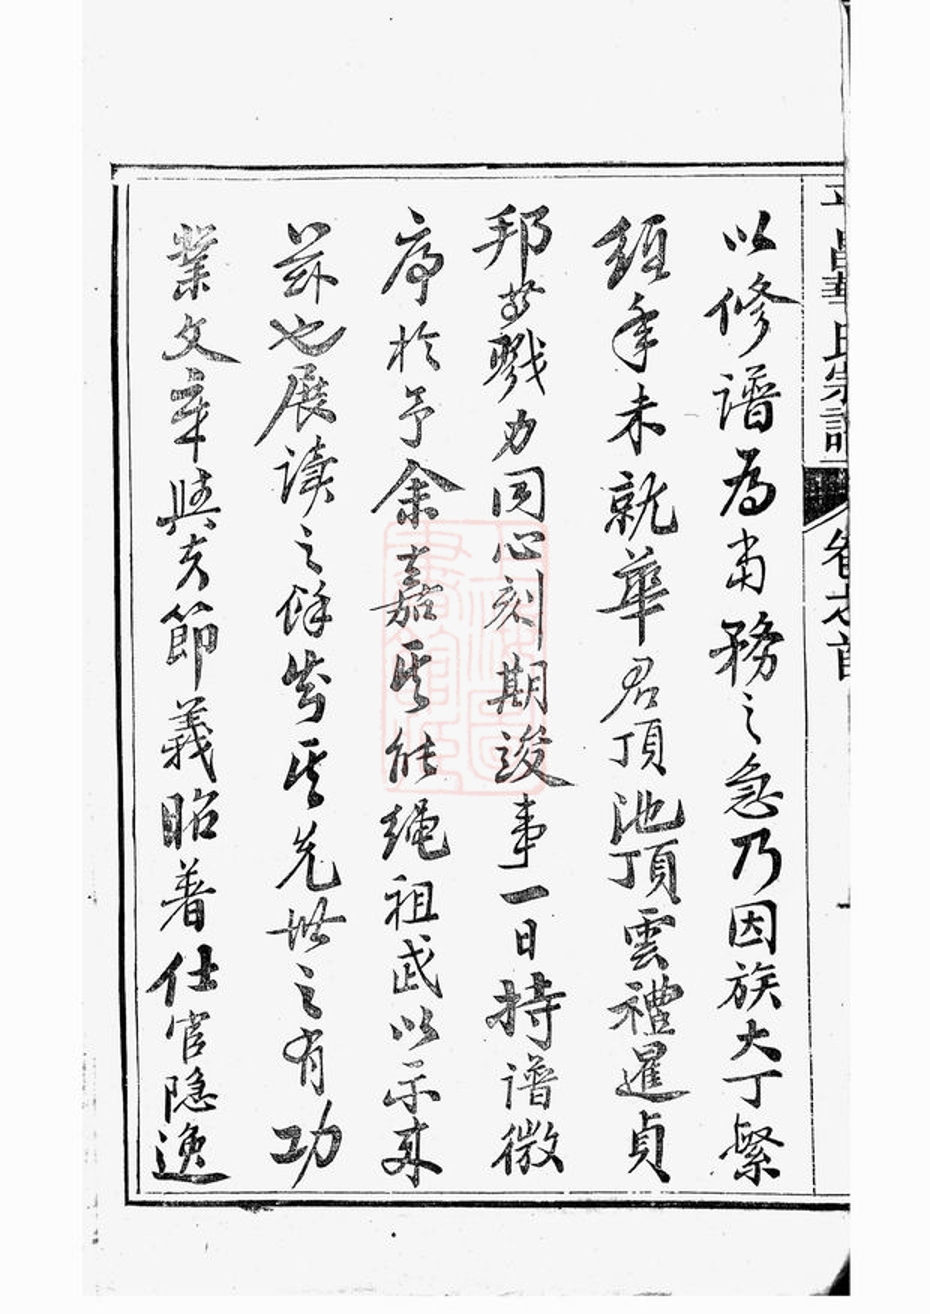 平昌華氏宗譜 卷之首
以修譜為當務之急乃因族大丁緊
經年未就華君頂池頂雲禮暹貞
邦等戮力同心刻期竣事一日持譜徵
序於予余嘉其能繩祖武以示来
茲也展读之餘其先世之有功
業文章與夫節義昭著仕官隐逸